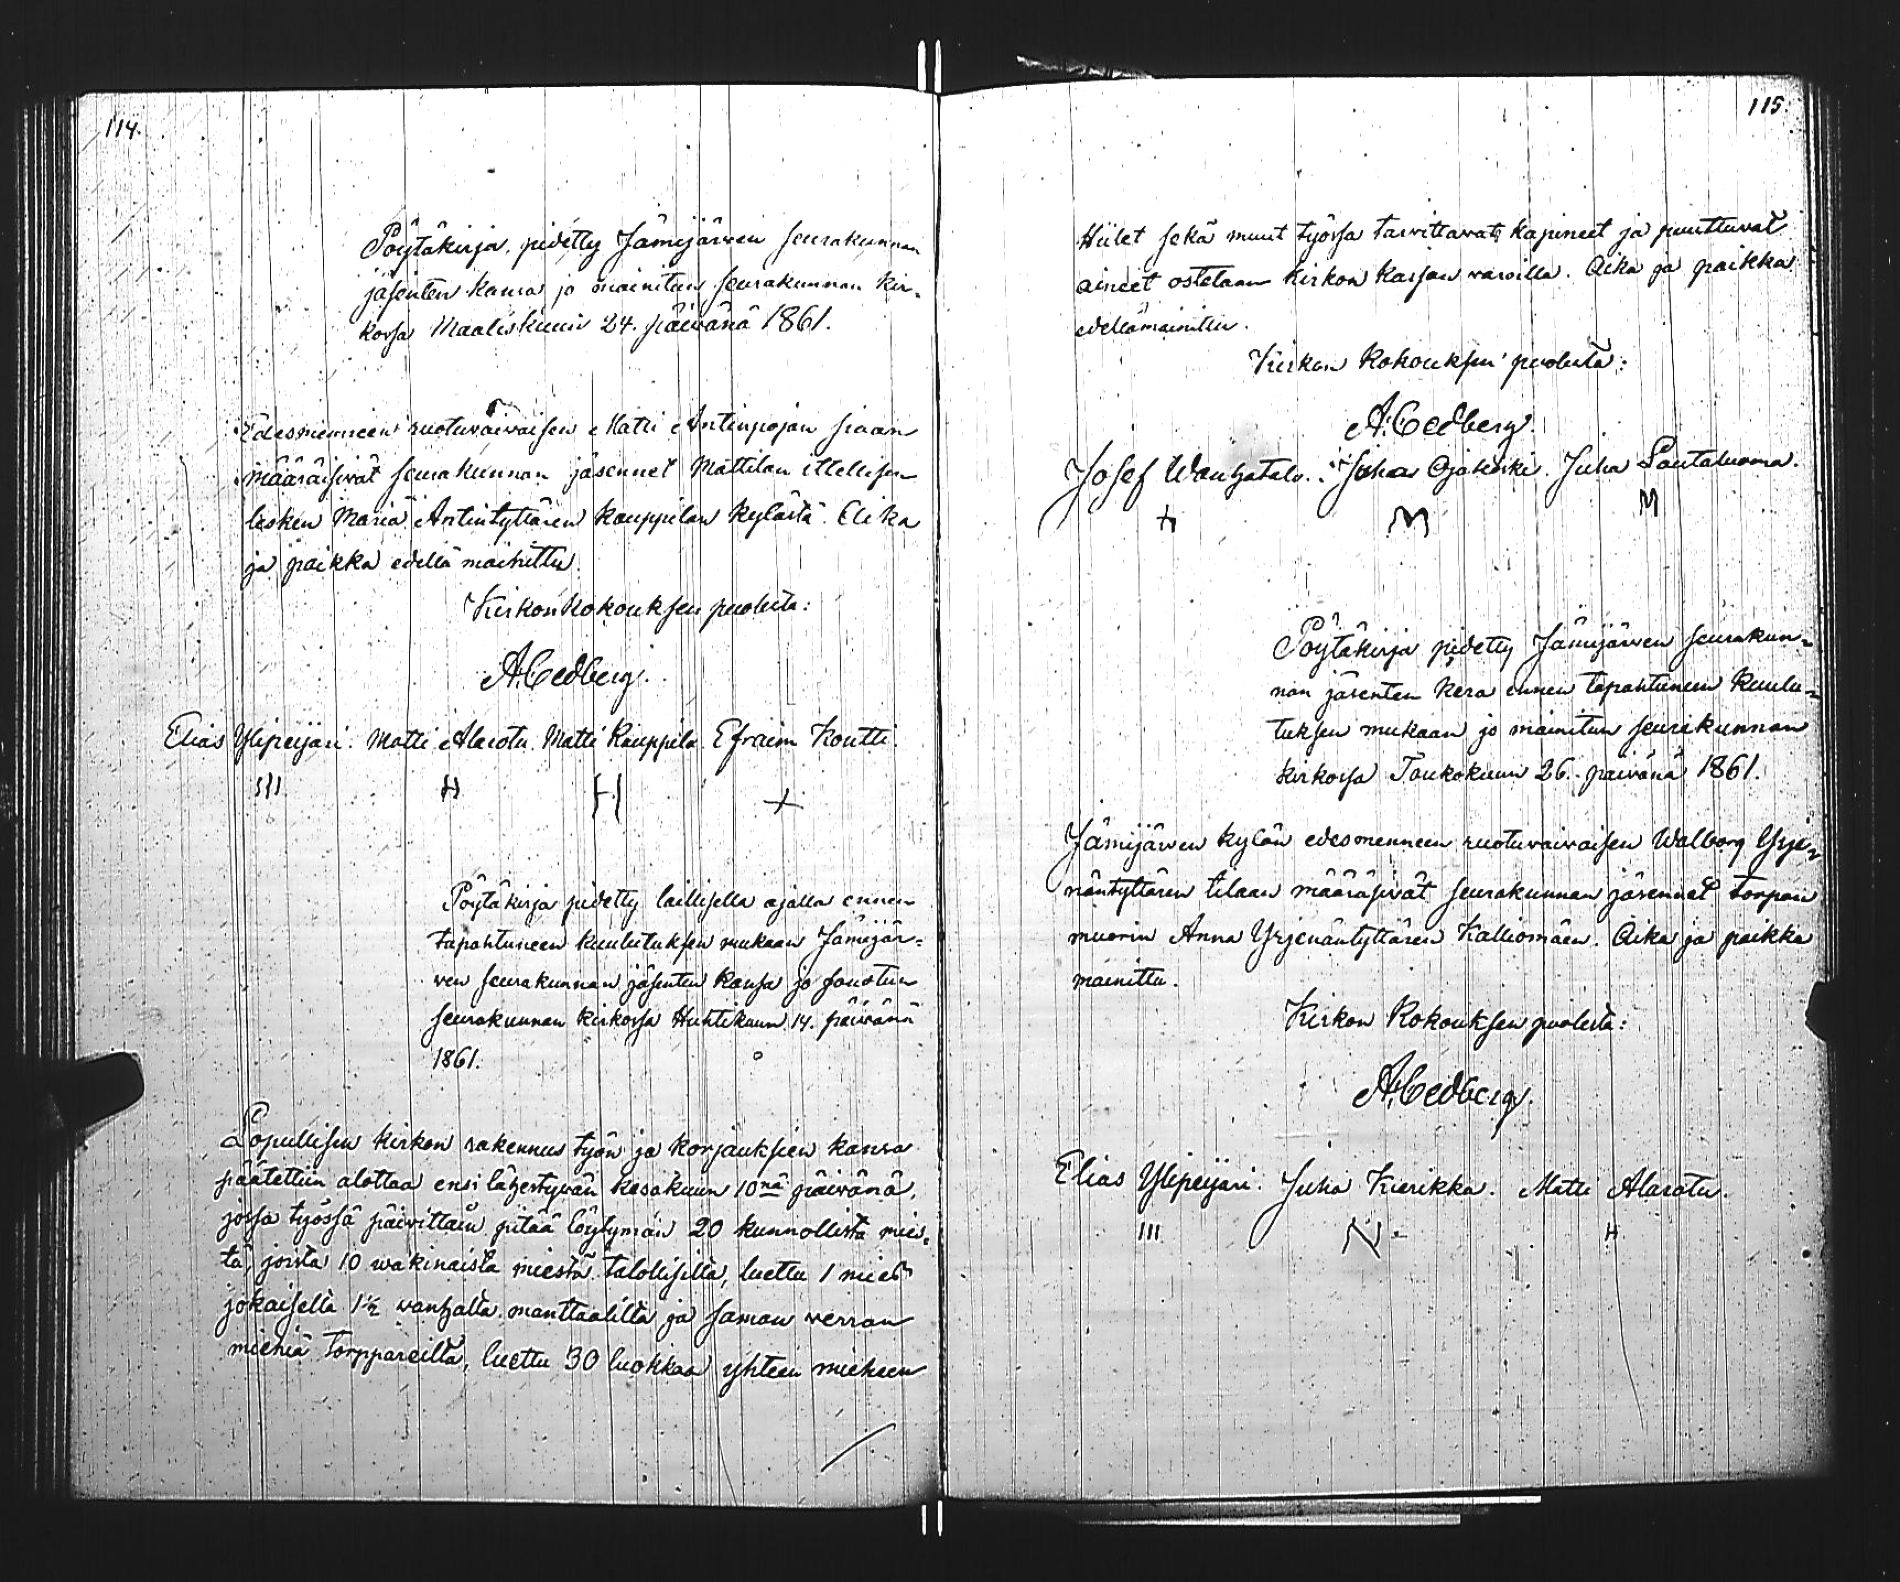 114.
Pöytäkirja, pidetty Jämijärwen seurakunnan
jäsenten kansa jo mainitun seurakunnan kir-
kossa Maaliskuun 24. päivänä 1861.
Edesmenneen ruotuvaivaisen Matti Antinpojan siaan
määräisivät seurakunnan jäsennet Mattilan ittellisen
lesken Maria Antintyttären Kauppilan kylästä. Aika
ja paikka edellä mainittu.
Kirkonkokouksen puolesta:
A. Cedberg.
Elias Ylipeijari. Matti Alarotu. Matti Kauppila. Efraim Koutti.
III H H +
Pöytäkirja pidetty laillisella ajalla ennen
tapahtuneen kuulutuksen mukaan Jämijär-
ven seurakunnan jäsenten kansa jo sanotun
seurakunnan kirkossa Huhtikuun 14. päivänä
1861.
Lopullisen kirkon rakennus työn ja korjauksien kansa
päätettiin alottaa ensi lähestyvän kesäkuun 10nä päivänä,
jossa työssä päivittäin pitää löytymän 20 kunnollista mies-
tä, joista 10 wäkinäistä miestä talollisilta, luettu 1 mies
jokaiselta 1½ vanhalta manttaalilta ja saman verran
miehiä torppareilta, luettu 30 luokkaa yhteen mieheen
115.
Hiilet sekä muut työssä tarvittavat kapineet ja puuttuvat
aineet ostetaan Kirkon kassan varoilla. Aika ja paikka
edellämainittu.
Kirkon Kokouksen puolesta:
A. Cedberg.
Josef Wanhatalo. Juha Ojakoski. Juha Lautaluoma.
+ M M
Pöytäkirja pidetty Jämijärwen seurakun-
nan jäsenten kera ennen tapahtuneen kuulu-
tuksen mukaan jo mainitun seurakunnan
kirkossa Toukokuun 26. päivänä 1861.
Jämijärwen kylän edesmenneen ruotuvaivaisen Walborg Yrje-
näntyttären tilaan määräsivät seurakunnan jäsennet torpan
muorin Anna Yrjenäntyttären Kalliomäen. Aika ja paikka
mainittu.
Kirkon Kokouksen puolesta:
A. Cedberg.
Elias Ylipeijari. Juha Kierikka. Matti Alarotu.
III N H